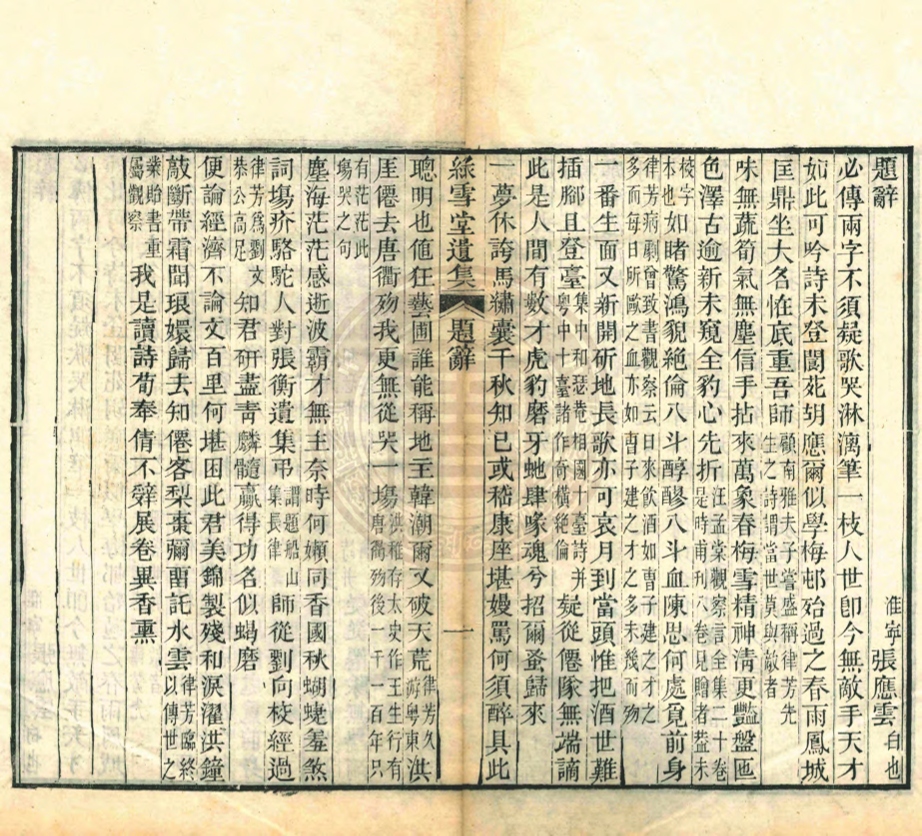 題辭
淮寧張應雲白也
必傳兩字不須疑歌哭淋漓筆一枝人世卽今無敵手天才
如此可吟詩未登閬苑胡應爾似學梅邨殆過之春雨鳳城
匡鼎坐大名怪底重吾師顧南雅夫子嘗盛稱律芳先生之詩謂當世莫與敵者
味無蔬筍氣無塵信手拈來萬象春梅雪精神清更豔盤匜
色澤古逾新未窺全豹心先折汪孟棠觀察言全集二十卷是時甫刊八卷見贈者葢未
校字本也如睹驚鴻貌絕倫八斗醇醪八斗血陳思何處覓前身
律芳病劇曾致書觀察云日來飲酒如曹子建之才之多而每日所歐之血亦如曹子建之才之多未幾而歿
一番生面又新開斫地長歌亦可哀月到當頭惟把酒世難
插腳且登臺集中和瑟菴相國十臺詩并粵中十臺諸作奇橫絕倫疑從僊隊無端謫
此是人間有數才虎豹磨牙虵肆喙魂兮招爾蚤歸來
一夢休誇馬繡囊千秋知已或嵇康座堪嫚罵何須醉具此
綠雪堂遺集 題辭 一
聰明也傕狂藝圃誰能稱地主韓潮爾又破天荒律芳久游粵東洪
厓僊去唐衢歿我更無從哭一場洪稚存太史作王生行有唐衢歿後一千一百年只
有茫茫此塲哭之句
塵海茫茫感逝波霸才無主奈時何嬾同香國秋蝴蜨羞煞
詞塲疥駱駝人對張衡遺集弔謂題船山集長律師從劉向校經過
律芳爲劉文恭公高足知君研盡靑麟髓贏得功名似蝎磨
便論經濟不論文百里何堪困此君美錦製殘和淚濯洪鐘
敲斷帶霜聞琅嬛歸去知僊客梨棗彌留託水雲律芳臨終以傳世之
業貽書重屬觀察我是讀詩荀奉倩不辤展卷異香熏